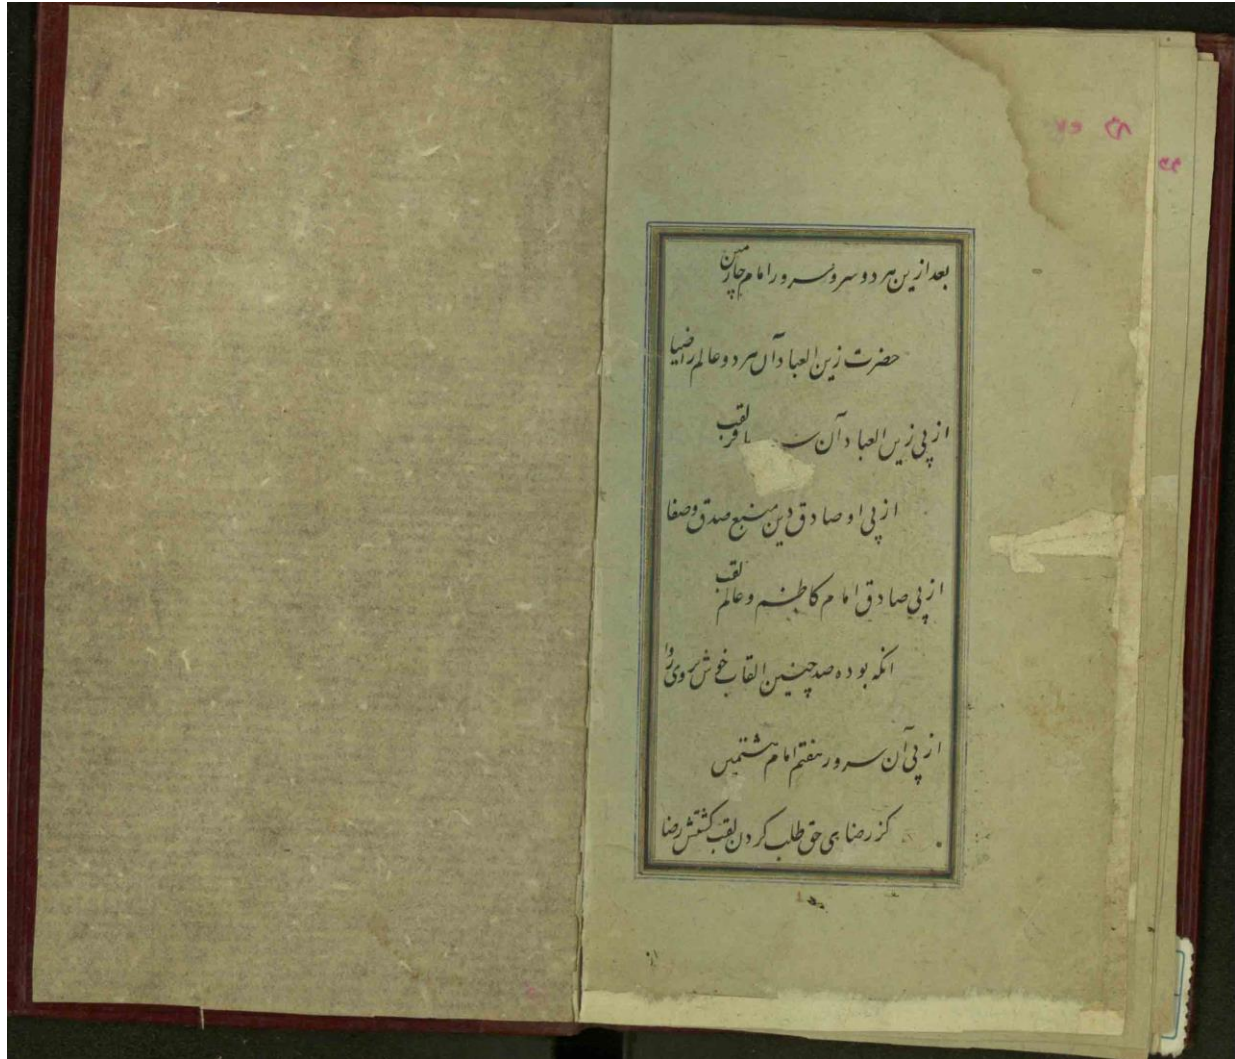 بعد ازین هر دو سرو سرور امام چارمین
حضرت زین العباد آن هر دو عالم را ضیا
از پی زین العباد آن باقر لقب
از پی او صادق دین منبع صدق و صفا
از پی صادق امام کاظم و عالم لقب
انکه بوده صد چنین القاب خوش بروی روا
از پی آن سرور هفتم امام هشتمین
کز رضای حق طلب کردن لقب گشتش رضا